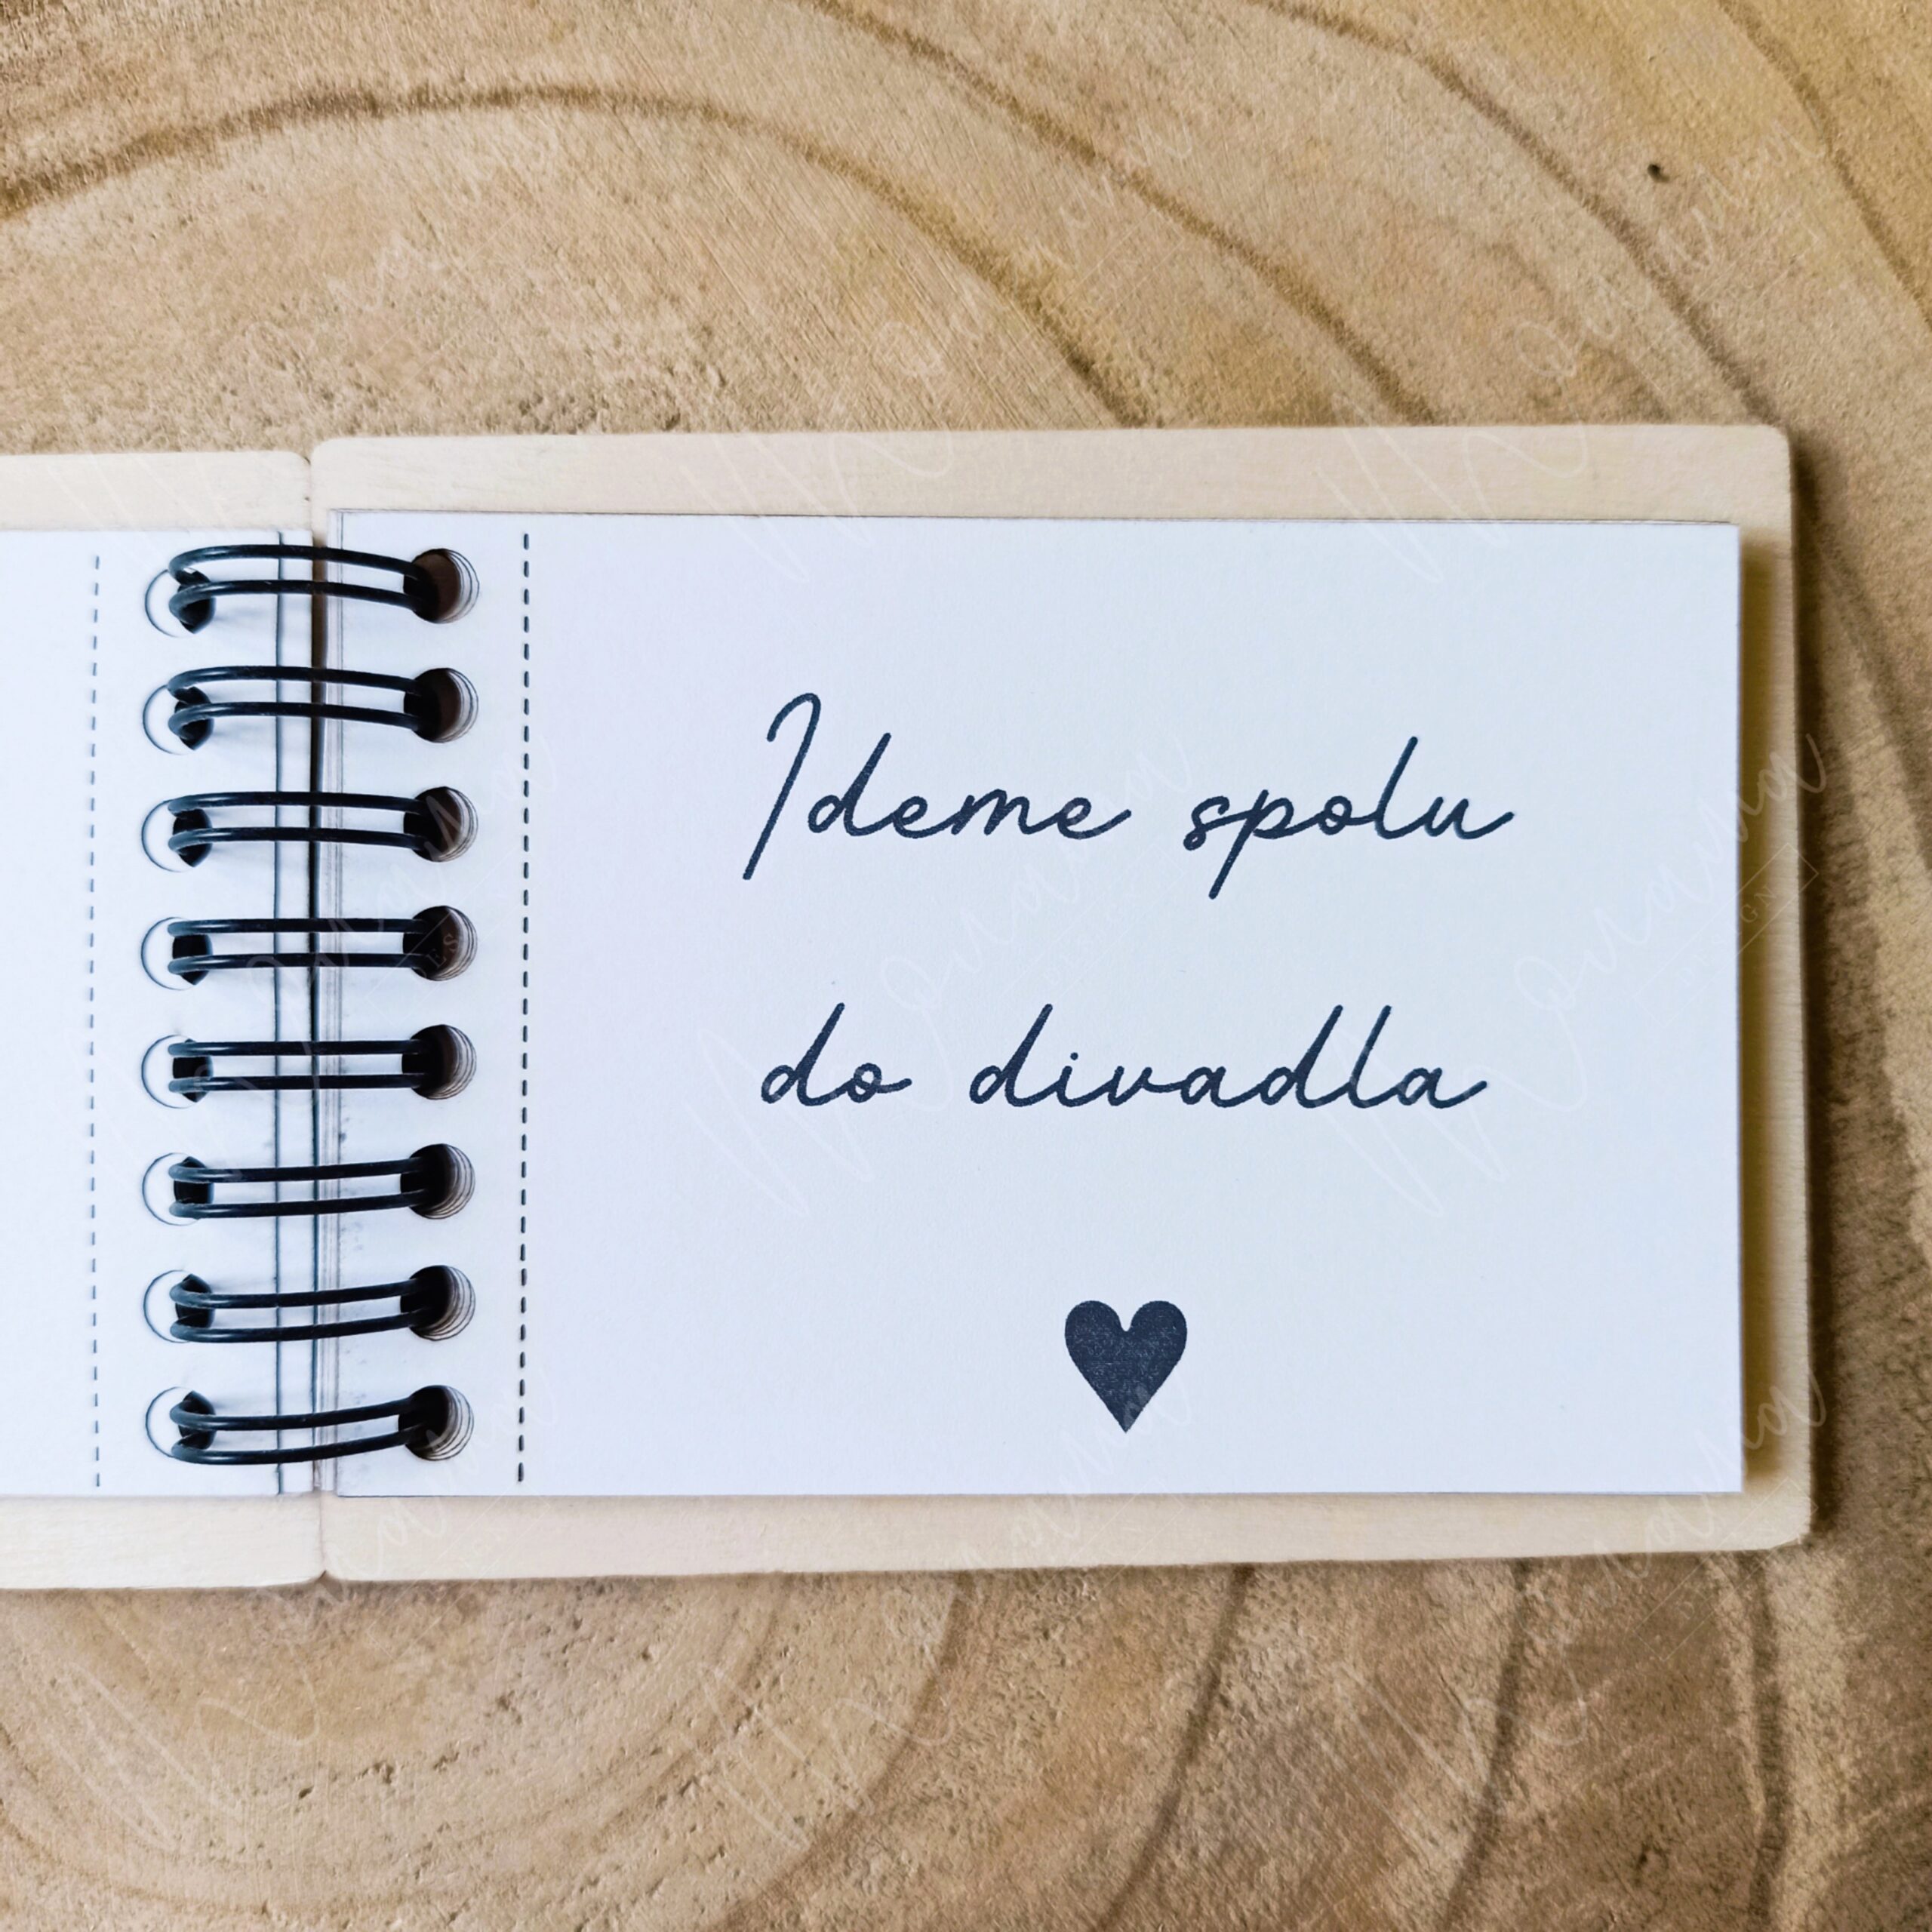 Ideme spolu
do divadla